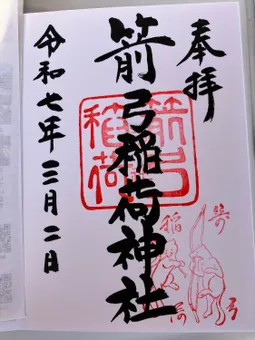 奉拝
箭弓稲荷神社
箭弓
稲荷
令和七年三月二日
箭弓
稲荷